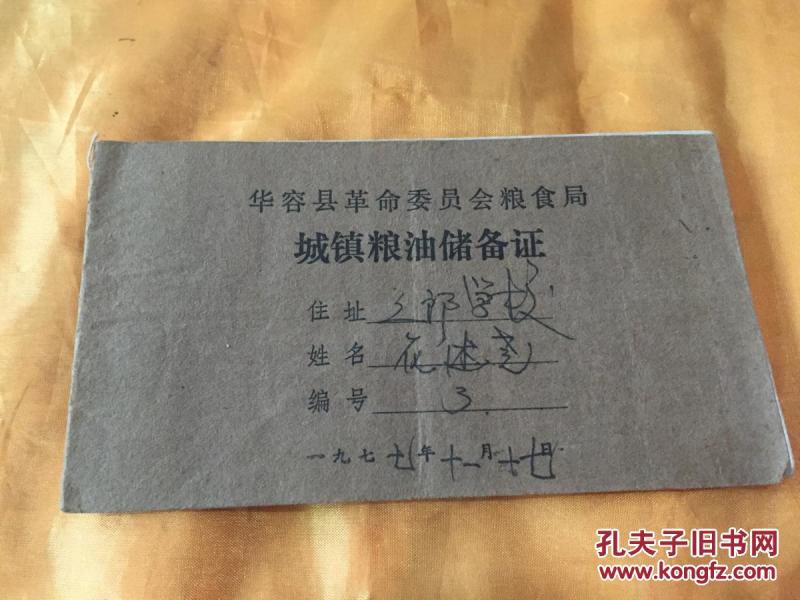 华容县革命委员会粮食局
城镇粮油储备证
住址 三郎学校
姓名
编号 3
一九七七年十一月十七日
孔夫子旧书网
www.kongfz.com